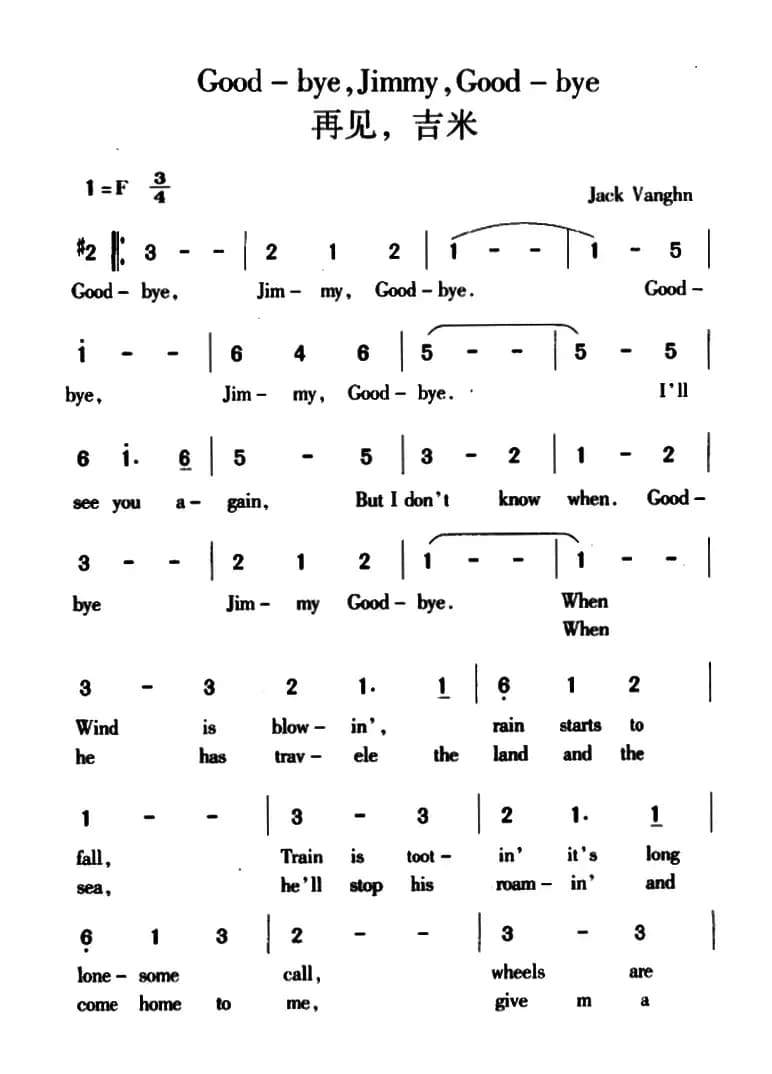 Good - bye, Jimmy, Good - bye
再见，吉米
1=F 3/4
Jack Vanghn
#2 ‖: 3 - - | 2 1 2 | 1 - - | 1 - 5 |
Good- bye, Jim- my, Good-bye. Good-
i - - | 6 4 6 | 5 - - | 5 - 5 |
bye, Jim- my, Good- bye. I'll
6 i. 6 | 5 - 5 | 3 - 2 | 1 - 2 |
see you a- gain, But I don't know when. Good-
3 - - | 2 1 2 | 1 - - | 1 - - |
bye Jim- my Good- bye. When
When
3 - 3 2 1. 1 | 6 1 2 |
Wind is blow- in', rain starts to
he has trav- ele the land and the
1 - - | 3 - 3 | 2 1. 1 |
fall, Train is toot- in' it's long
sea, he'll stop his roam- in' and
6 1 3 | 2 - - | 3 - 3 |
lone- some call, wheels are
come home to me, give m a